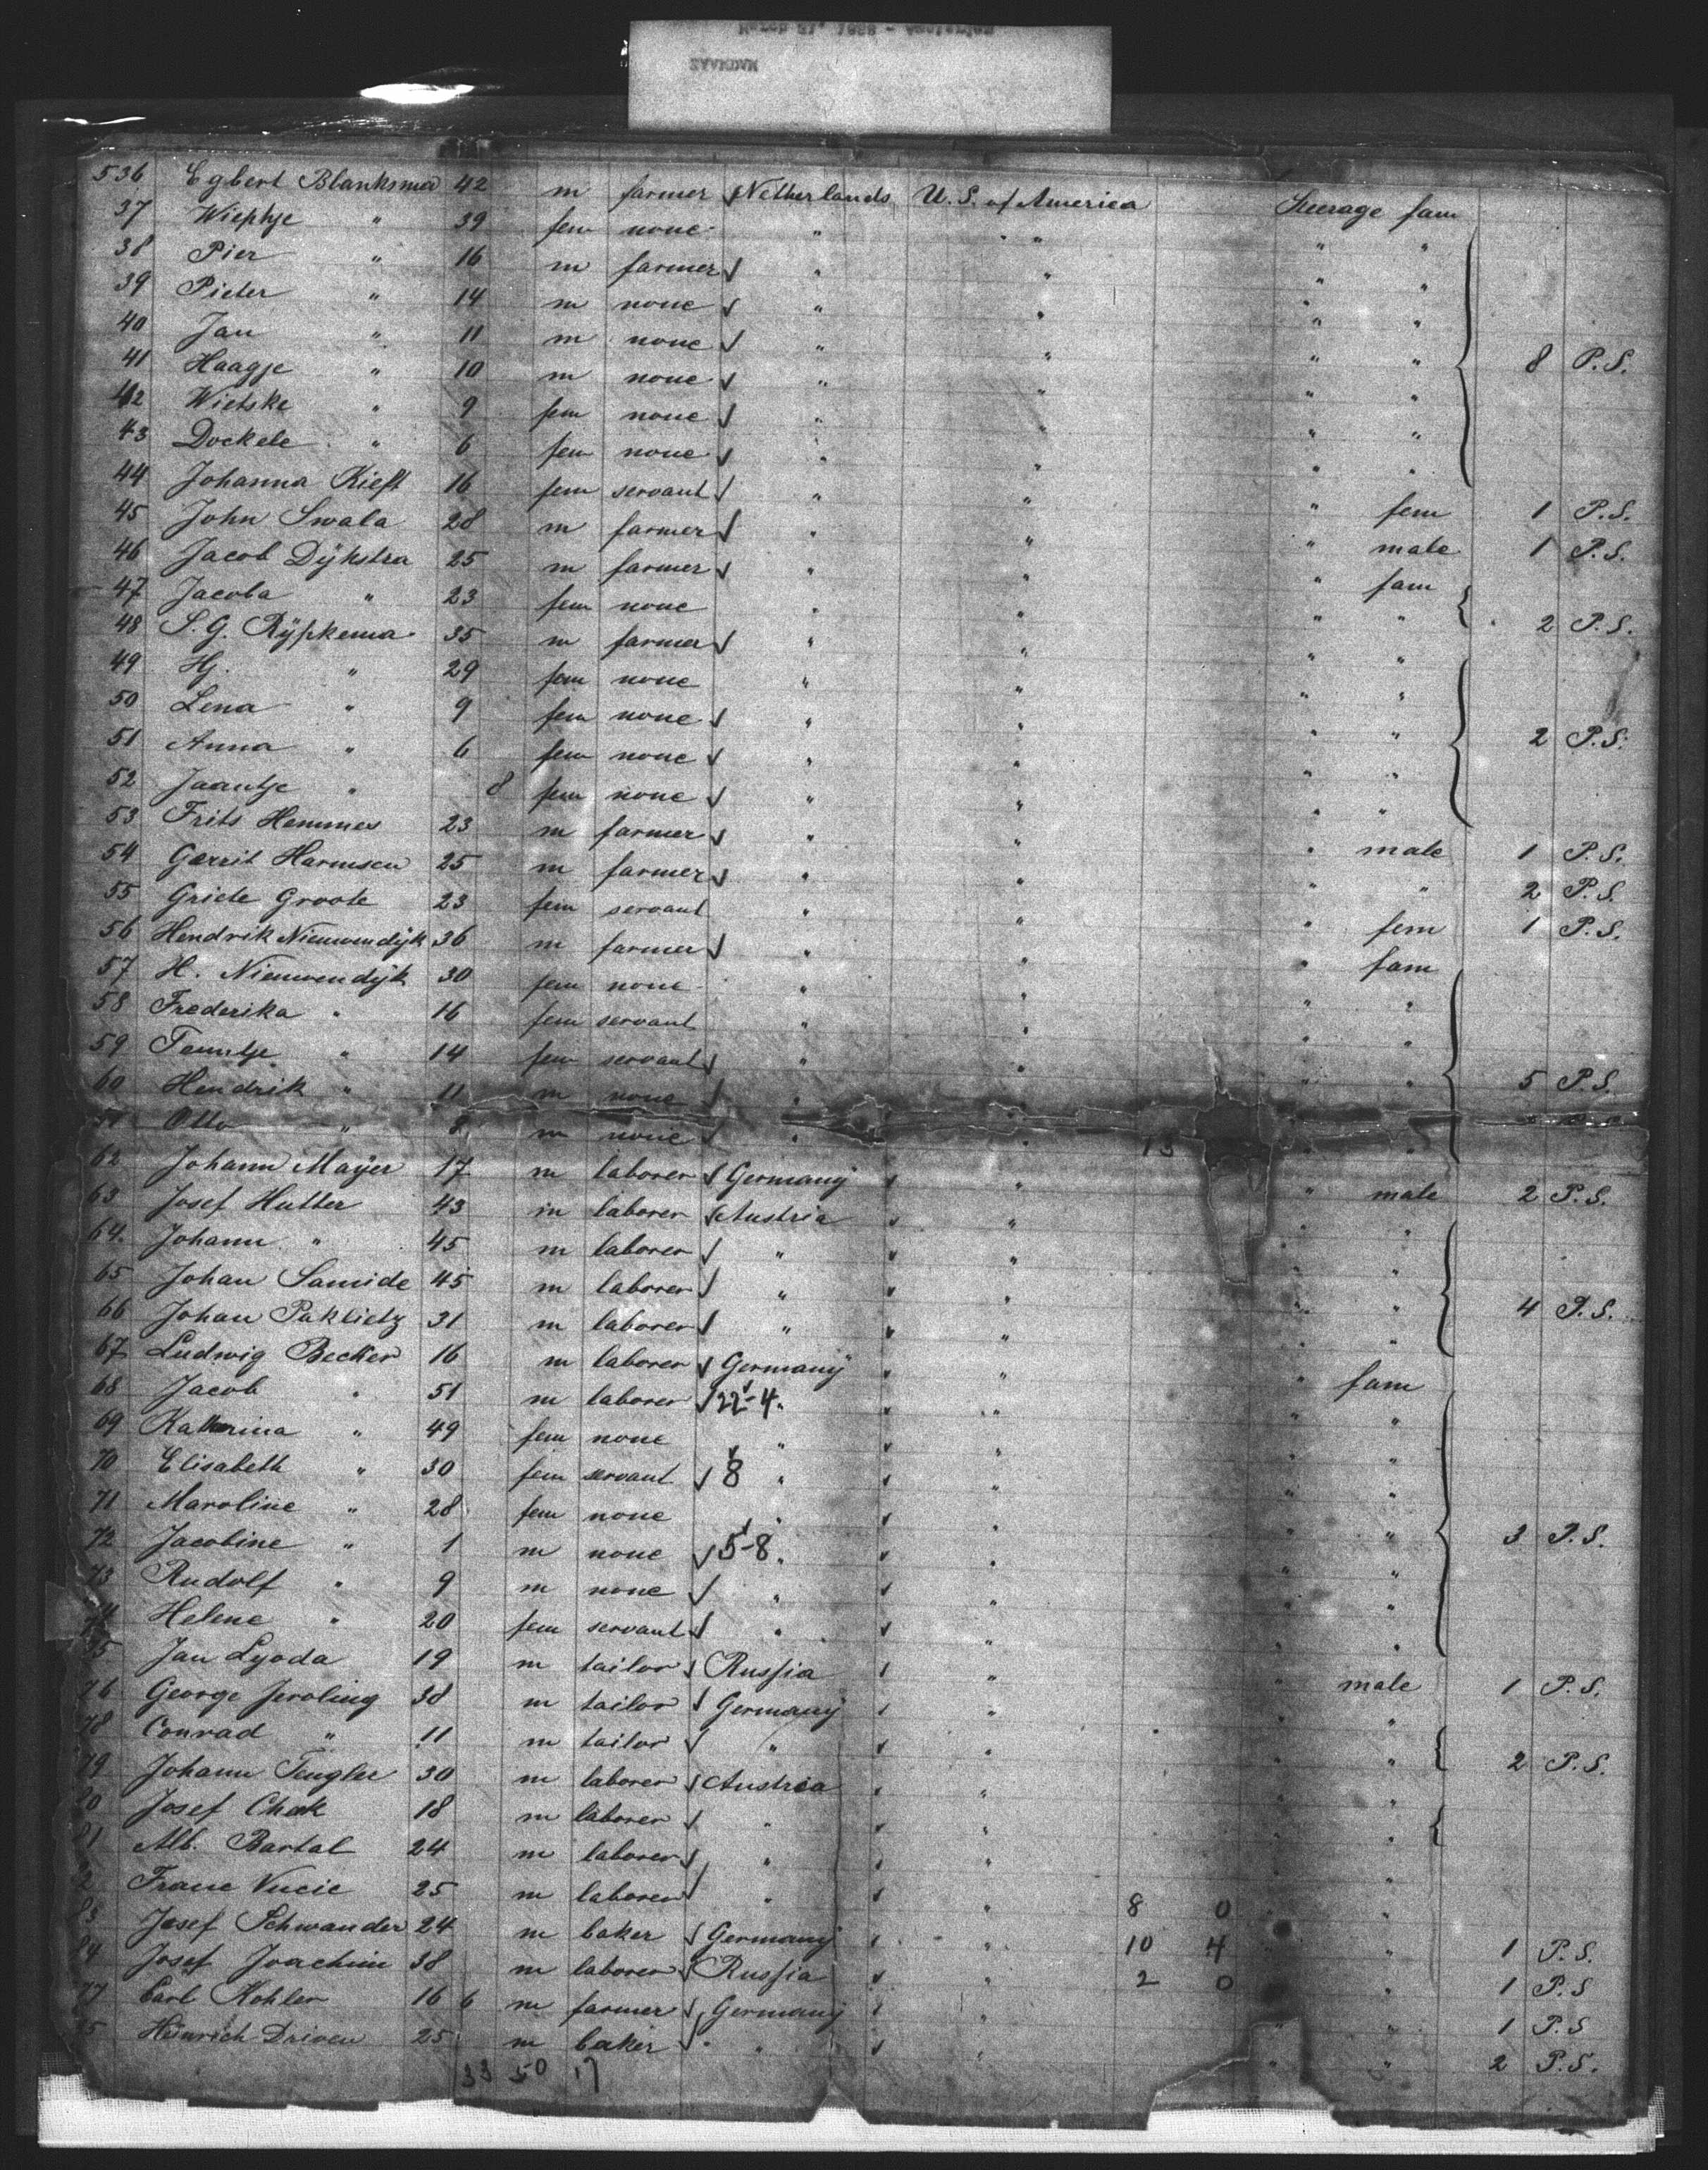 536 Egbert Blanksma 42 m farmer Netherlands U. S. of America Steerage fam
37 Wiephje " 39 fem none " " " "
38 Pier " 16 m farmer " " " "
39 Pieter " 14 m none " " " "
40 Jan " 11 m none " " " "
41 Haagje " 10 m none " " " " 8 P.S.
42 Wietske " 9 fem none " " " "
43 Dockele " 6 fem none " " " "
44 Johanna Kieft 16 fem servant " " " fem 1 P.S.
45 John Swala 28 m farmer " " " male 1 P.S.
46 Jacob Dÿkstra 25 m farmer " " " fam
47 Jacoba " 23 fem none " " " " 2 P.S.
48 S. G. Rÿpkema 35 m farmer " " " "
49 Hj. " 29 fem none " " " "
50 Lena " 9 fem none " " " " 2 P.S.
51 Anna " 6 fem none " " " "
52 Jaantje " 8 fem none " " " "
53 Frits Hemmes 23 m farmer " " " male 1 P.S.
54 Gerrit Harmsen 25 m farmer " " " " 2 P.S.
55 Griete Groote 23 fem servant " " " fem 1 P.S.
56 Hendrik Nieuwendÿk 36 m farmer " " " fam
57 H. Nieuwendÿk 30 fem none " " " "
58 Frederika " 16 fem servant " " " "
59 Teuntje " 14 fem servant " " " " 5 P.S.
60 Hendrik " 11 m none " " " "
Otto " 8 m none " " 13 " "
62 Johann Mayer 17 m laborer Germany " " male 2 P.S.
63 Josef Hutter 43 m laborer Austria " " "
64 Johann " 45 m laborer " " " "
65 Johan Samide 45 m laborer " " " " 4 P.S.
66 Johan Paklietz 31 m laborer " " " "
67 Ludwig Becker 16 m laborer Germany " " fam
68 Jacob " 51 m laborer 22-4 " " " "
69 Katherina " 49 fem none " " " "
70 Elisabeth " 30 fem servant 8 " " " "
71 Maroline " 28 fem none " " " " 3 P.S.
72 Jacobine " 1 m none 5-8 " " " "
73 Rudolf " 9 m none " " " "
74 Helene " 20 fem servant " " " "
75 Jan Lyoda 19 m tailor Russia " " male 1 P.S.
76 George Jeroling 38 m tailor Germany " " "
78 Conrad " 11 m tailor " " " " 2 P.S.
79 Johann Tengler 30 m laborer Austria " " "
80 Josef Chak 18 m laborer " " " "
81 Alb. Bartal 24 m laborer " " " "
2 Franc Vucic 25 m laborer " " 8 0 " "
83 Josef Schwander 24 m baker Germany " 10 4 " " 1 P.S.
84 Josef Joachim 38 m laborer Russia " 2 0 " 1 P.S
77 Carl Kohler 16 6 m farmer Germany " " " 1 P.S
85 Heinrich Driven 25 m baker " " " " 2 P.S.
33 50 17